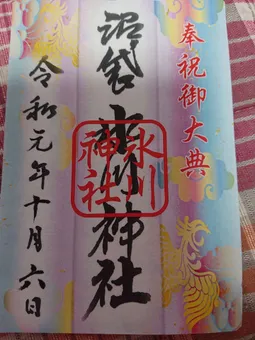 奉祝御大典
沼袋氷川神社
氷川神社
令和元年十月六日